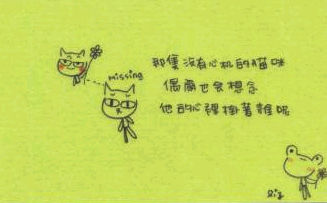 missing
那隻沒有心机的貓咪
偶爾也會想念
他的心裡掛著誰呢